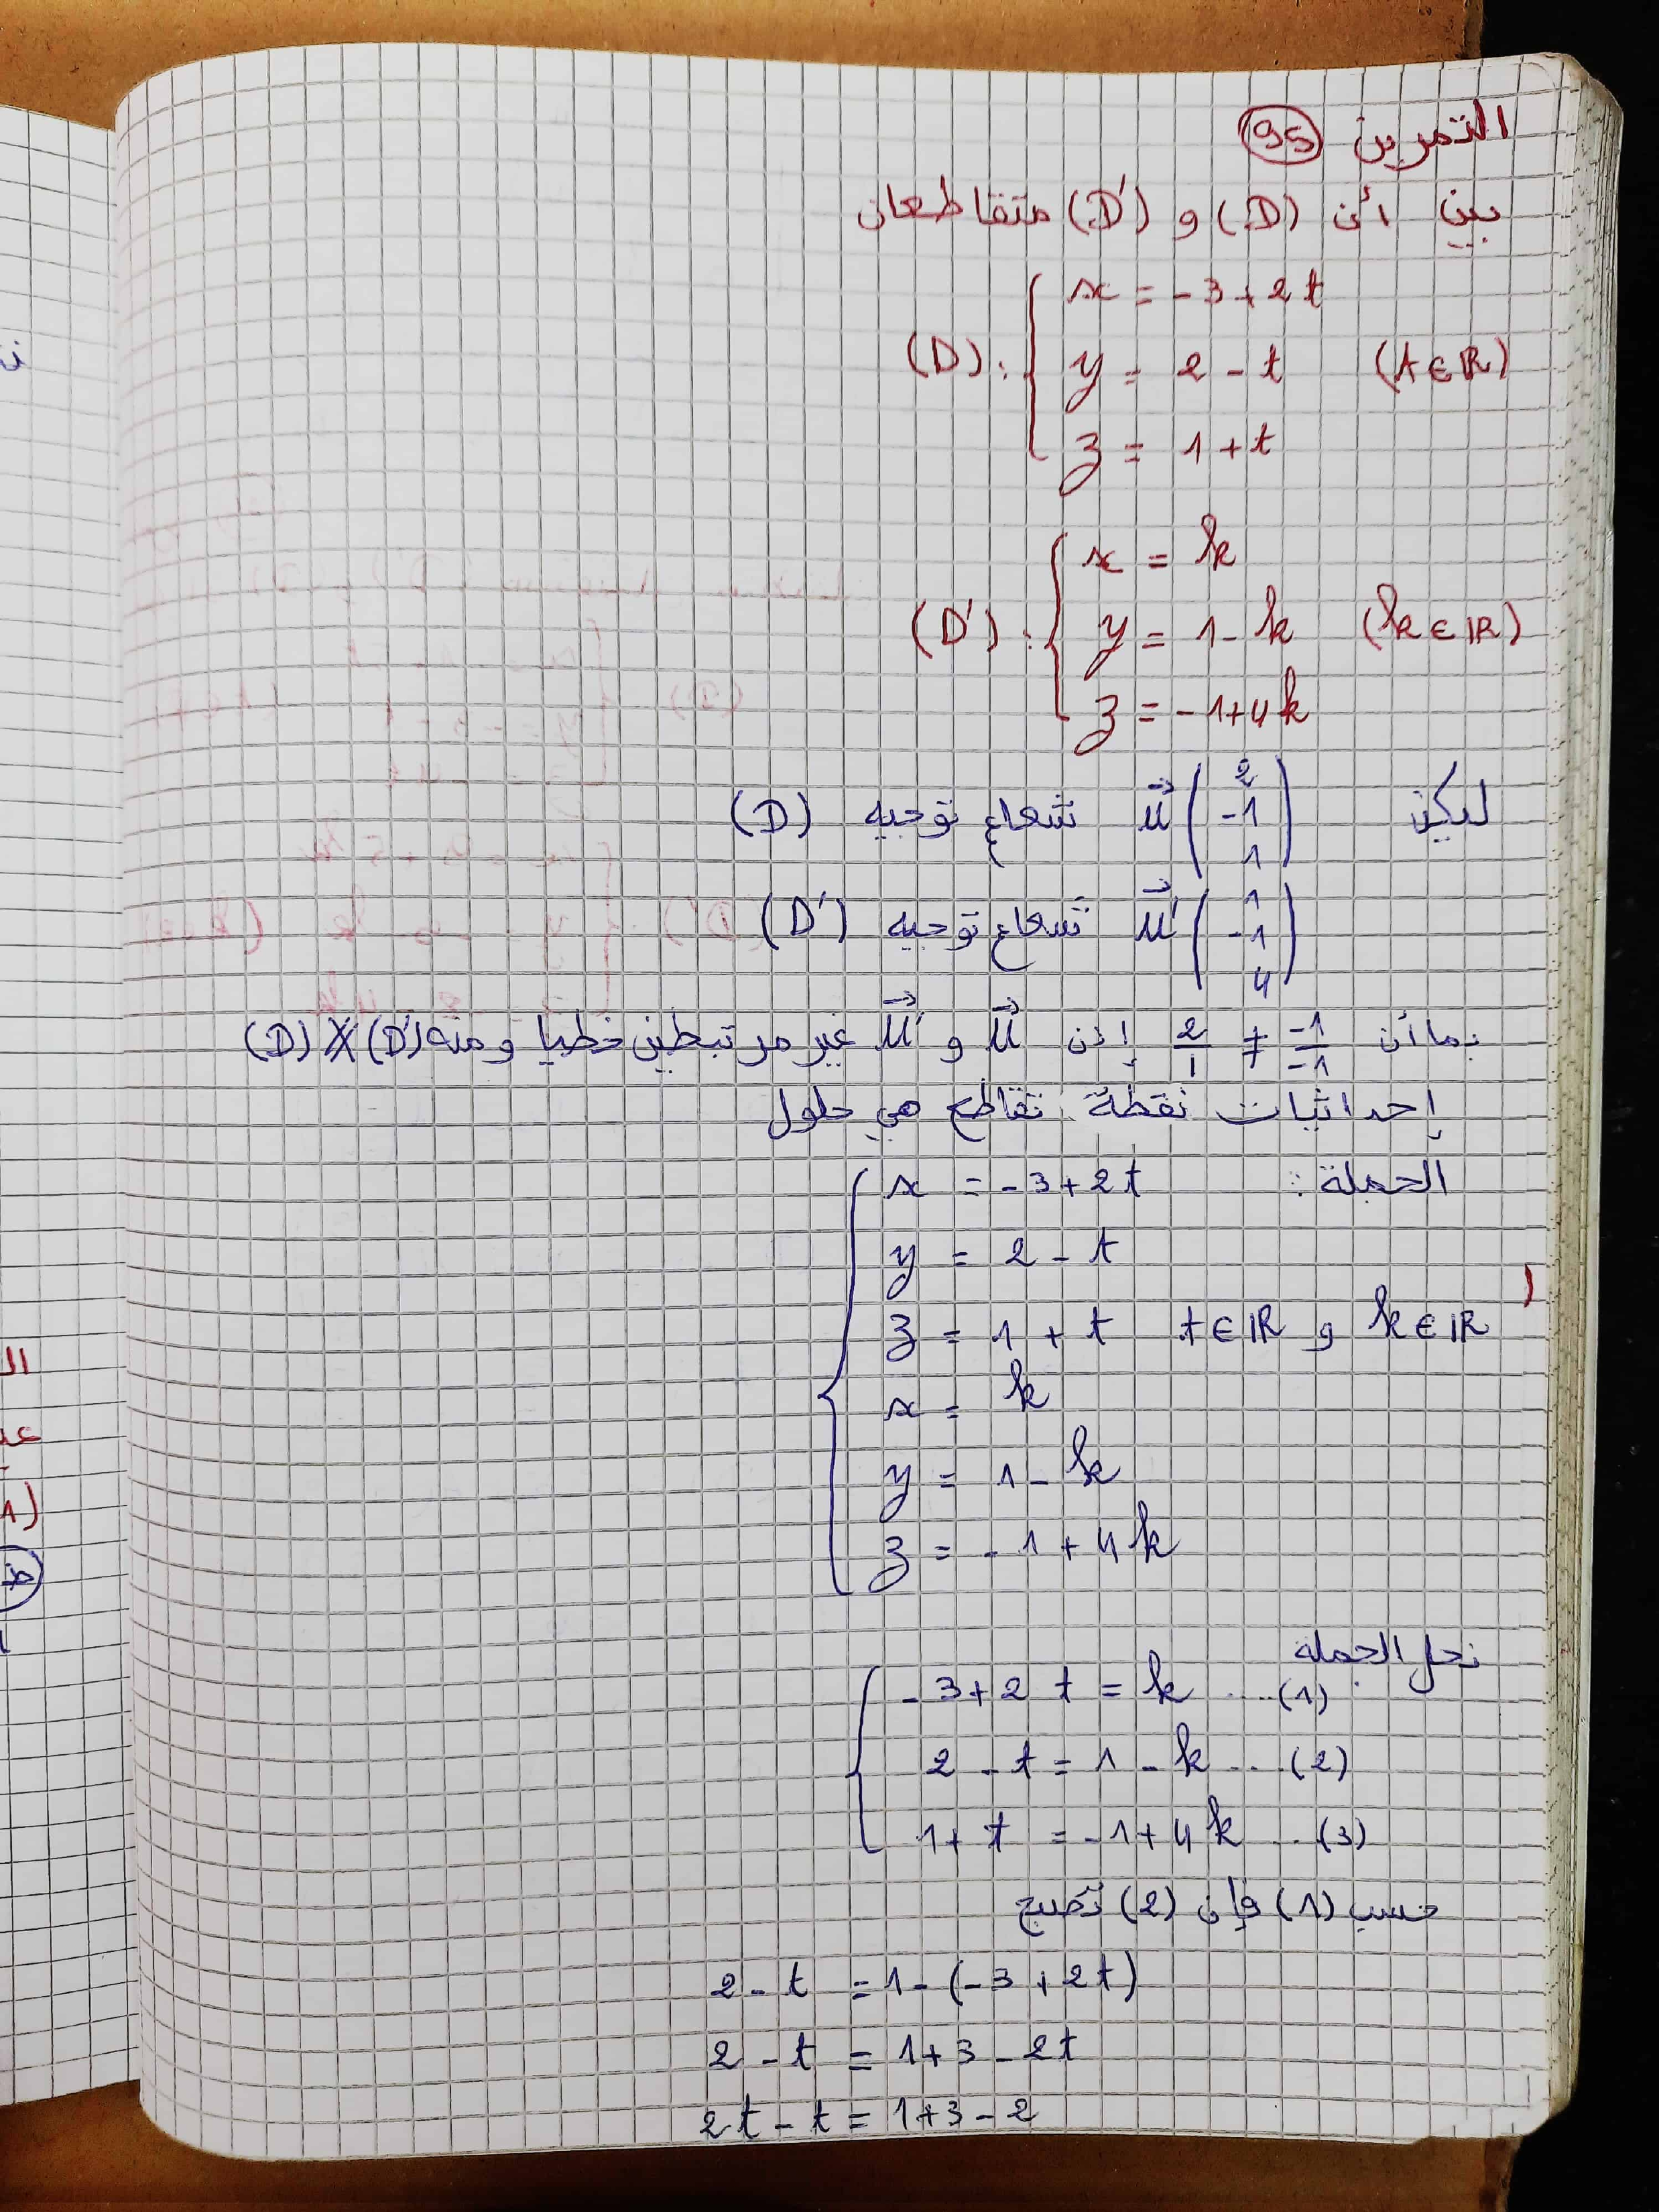 التمرين 95
بين أن (D) و (D') متقاطعان
(D): { x = -3+2t
y = 2 - t (t∈ℝ)
z = 1 + t
(D'): { x = k
y = 1 - k (k∈ℝ)
z = -1+4k
ليكن u⃗ (2 -1 1) شعاع توجيه (D)
u⃗' (1 -1 4) شعاع توجيه (D')
بما أن 2/1 ≠ -1/-1 إذن u⃗ و u⃗' غير مرتبطين خطيا و منه (D) ∦ (D')
إحداثيات نقطة تقاطع هي حلول
الجملة: { x = -3+2t
y = 2 - t
z = 1 + t t∈ℝ و k∈ℝ
x = k
y = 1 - k
z = -1 + 4k
نحل الجملة
{ -3+2t = k ....(1)
2 - t = 1 - k ...(2)
1 + t = -1+4k ..(3)
حسب (1) فإن (2) تصبح
2 - t = 1 - (-3+2t)
2 - t = 1+3 - 2t
2t - t = 1+3-2